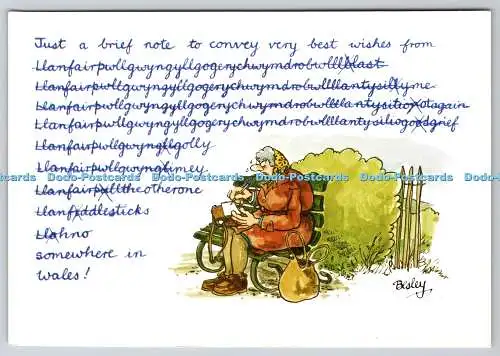 Just a brief note to convey very best wishes from
Llanfairpwllgwyngyllgogerychwymdrobwlllblast
Llanfairpwllgwyngyllgogerychwymdrobwllllantysillyme
Llanfairpwllgwyngyllgogerychwymdrobwllllantysitiootsagain
Llanfairpwllgwyngyllgogerychwymdrobwllllantysiliogoodgrief
Llanfairpwllgwyngllgolly
Llanfairpwllgwyngtimey
Llanfairpwlltheotherone
Llanfiddlesticks
Llahno
somewhere in
Wales!
Besley
Dodo Postcards Dodo Postcards Dodo Postcards Dodo Postcards Dodo Postcards